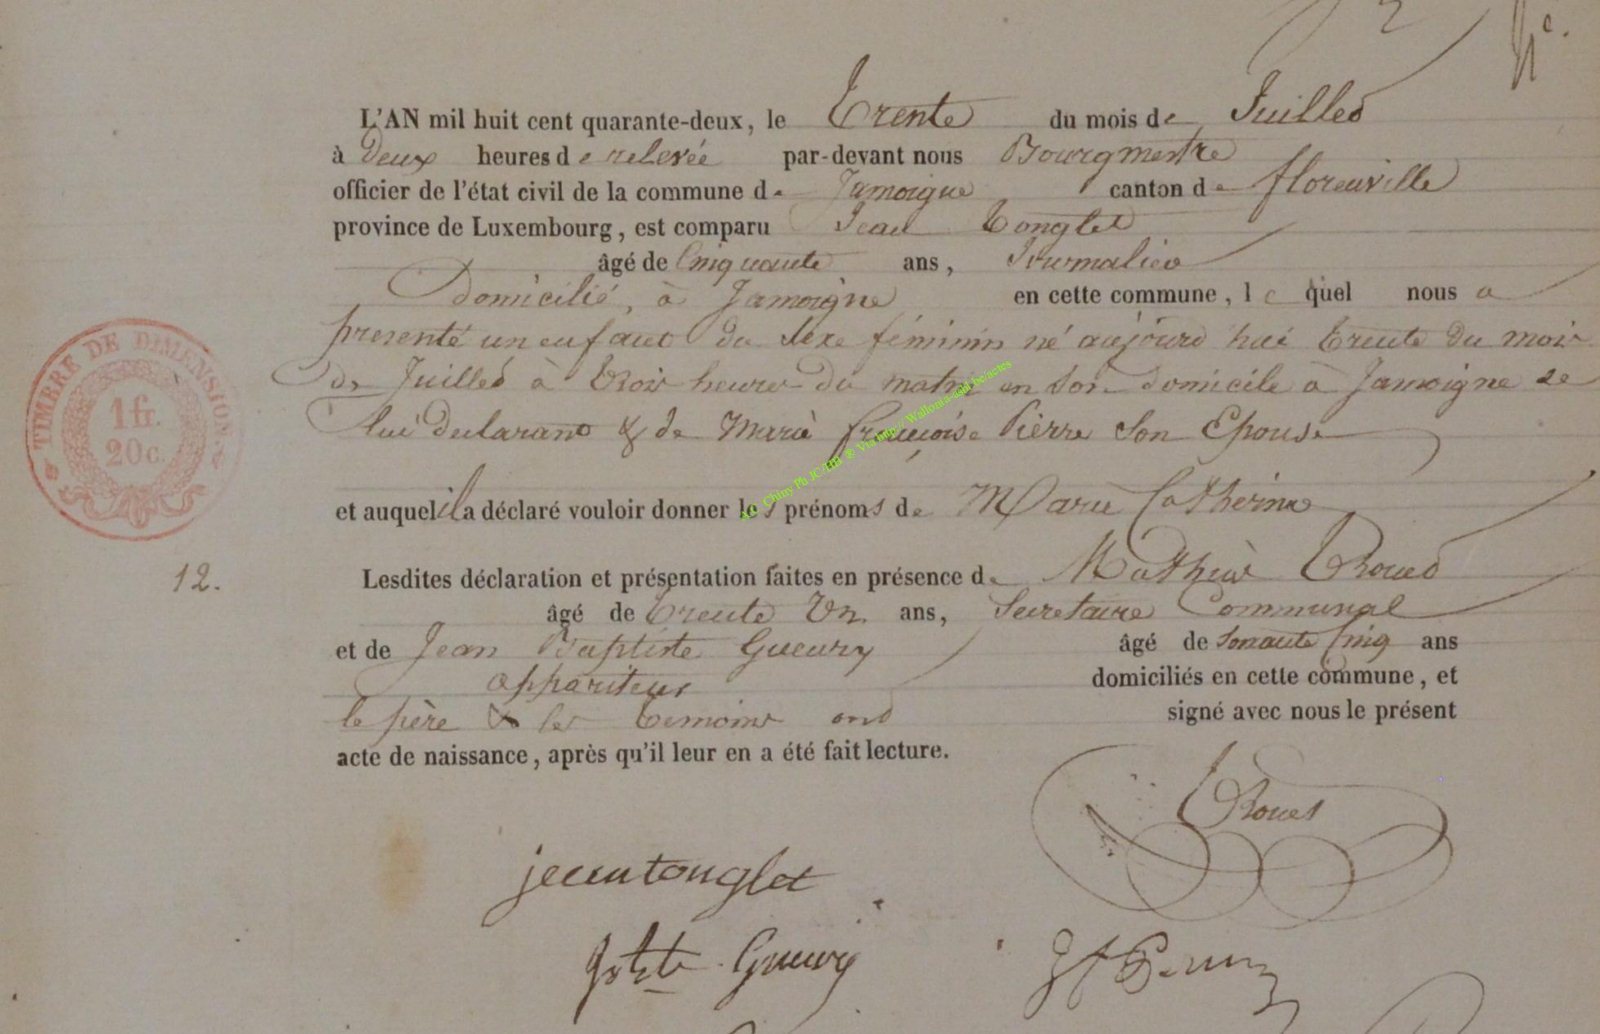 L'AN mil huit cent quarante-deux, le Trente du mois de Juillet
à Deux heures de relevée par-devant nous Bourgmestre
officier de l'état civil de la commune de Jamoigne canton de florenville
province de Luxembourg, est comparu Jean Tonglet
âgé de Cinquante ans, Journalier
domicilié, à Jamoigne en cette commune, lequel nous a
presenté un enfant du sexe féminin né aujourd hui trente du mois
de Juillet à trois heures du matin en son domicile à Jamoigne de
lui declarant & de Marie françoise Pierre son Epouse
et auquel il a déclaré vouloir donner les prénoms de Marie Catherine
12.
Lesdites déclaration et présentation faites en présence de Mathieu Roues
âgé de trente un ans, Secretaire Communal
et de Jean Baptiste Gueury âgé de soixante Cinq ans
appariteur domiciliés en cette commune, et
le père & les temoins ont signé avec nous le présent
acte de naissance, après qu'il leur en a été fait lecture.
Roues
jean tonglet
Gueury
TIMBRE DE DIMENSION
1 fr.
20 c.